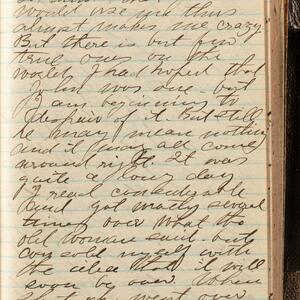 would use me thus
almost makes me crazy
But there is but few
true ones on the
world, I had hoped that
John was one but
I am beginning to
despair of it. But still
he may mean nothing
and it may all come
around right. It was
quite a long day
I read considerable
and got matty several
times over what the
old woman said. but
consoled myself with
the idea that it will
soon be over. When
went over